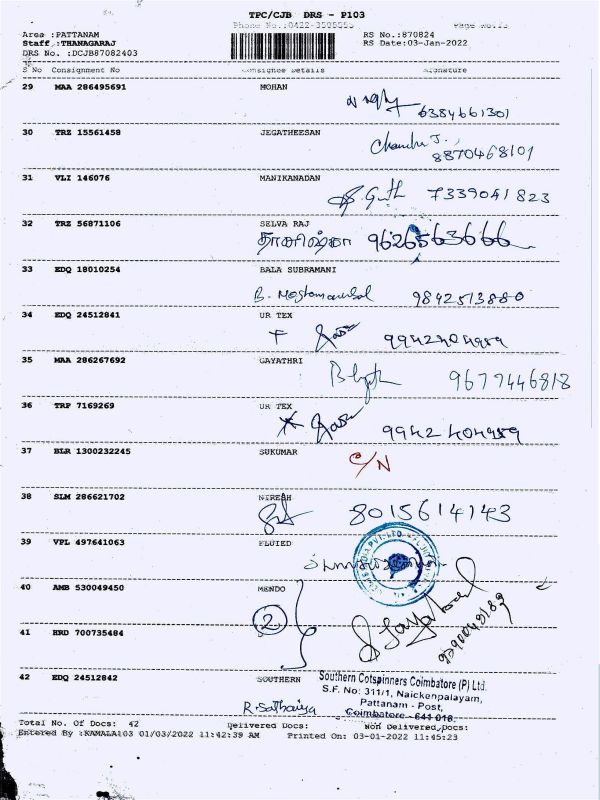 TPC/CJB DRS - P103
Phone No.:0422-3505555
Area :PATTANAM
RS No.:870824
Staff :THANAGARAJ
RS Date:03-Jan-2022
DRS No. :DCJB87082403
S No Consignment No Consignee Details Signature
29 MAA 286495691 MOHAN
6384661301
30 TRZ 15561458 JEGATHEESAN
Chandru J.
8870468101
31 VLI 146076 MANIKANADAN
7339041823
32 TRZ 56871106 SELVA RAJ
9626563666
33 EDQ 18010254 BALA SUBRAMANI
9842513880
34 EDQ 24512841 UR TEX
9942404989
35 MAA 286267692 GAYATHRI
9677446818
36 TRP 7169269 UR TEX
9942404989
37 BLR 1300232245 SUKUMAR
C/N
38 SLM 286621702 NIRESH
8015614143
39 VPL 497641063 FLUIED
40 AMB 530049450 MENDO
2
41 HRD 700735484
42 EDQ 24512842 SOUTHERN
R. Sathaiya
Southern Cotspinners Coimbatore (P) Ltd.
S.F. No: 311/1, Naickenpalayam,
Pattanam - Post,
Coimbatore - 641 016.
Total No. Of Docs: 42 Delivered Docs: Non Delivered Docs:
Entered By :KAMALA103 01/03/2022 11:42:39 AM Printed On: 03-01-2022 11:45:23